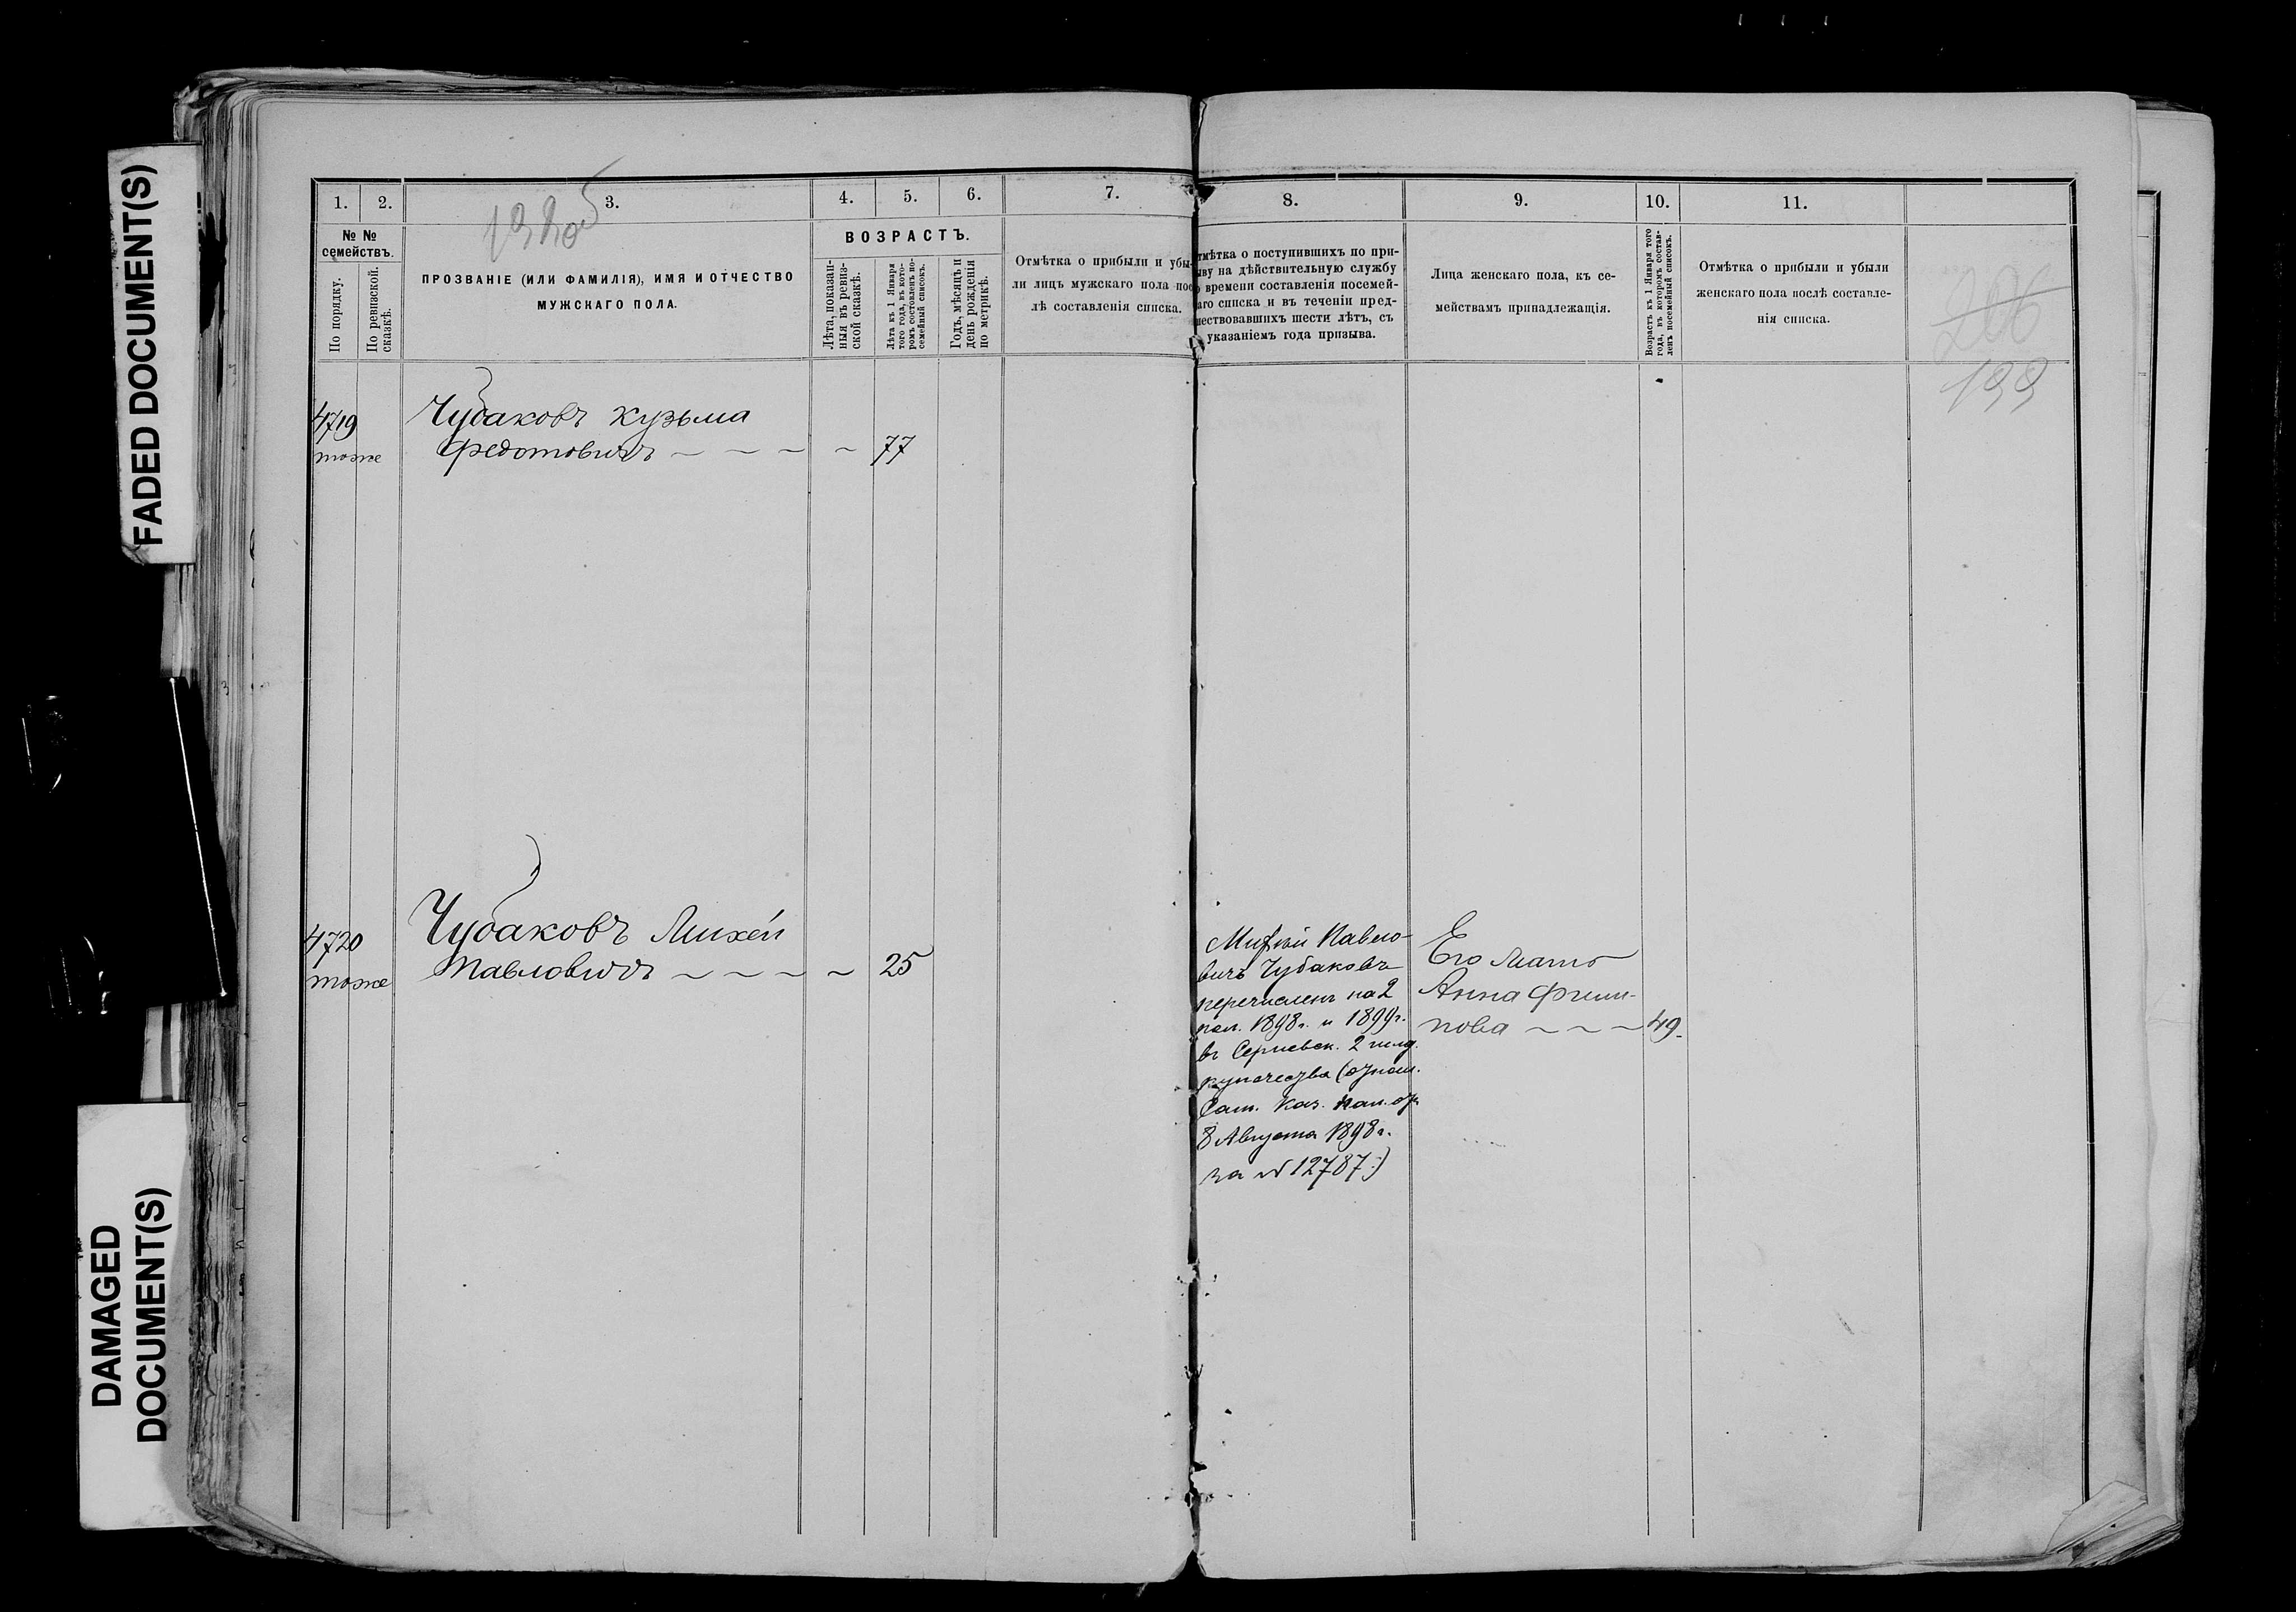 FADED DOCUMENT(S)
DAMAGED
DOCUMENT(S)
1. 2. 3. 4. 5. 6. 7.
№ №
семействъ.
По порядку.
По ревизской
сказкѣ.
ПРОЗВАНІЕ (ИЛИ ФАМИЛІЯ), ИМЯ И ОТЧЕСТВО
МУЖСКАГО ПОЛА.
ВОЗРАСТЪ.
Лѣта, показан-
ныя въ ревиз-
ской сказкѣ.
Лѣта къ 1 Января
того года, въ кото-
ромъ составленъ по-
семейный списокъ.
Годъ, мѣсяцъ и
день рожденія
по метрикѣ.
Отмѣтка о прибыли и убы-
ли лицъ мужскаго пола пос
лѣ составленія списка.
4719
тоже
Чубаковъ Кузьма
Федотовичъ — — — — 77
4720
тоже
Чубаковъ Михей
Павловичъ — — — — 25
8. 9. 10. 11.
тмѣтка о поступившихъ по при-
ыву на дѣйствительную службу
о времени составленія посемей-
аго списка и въ теченіи пред-
шествовавшихъ шести лѣтъ, съ
указаніемъ года призыва.
Лица женскаго пола, къ се-
мействамъ принадлежащія.
Возрастъ къ 1 Января того
года, въ которомъ состав-
ленъ посемейный списокъ.
Отмѣтка о прибыли и убыли
женскаго пола послѣ составле-
нія списка.
206
199
Михей Павло-
вичъ Чубаковъ
перечисленъ на 2
пол. 1898 г. и 1899 г.
въ Сергиевск. 2 гилд.
купечества (отнош.
Сам. Каз. Пал. от
8 Августа 1898 г.
за № 12787.)
Его мать
Анна Филип-
пова — — — 49